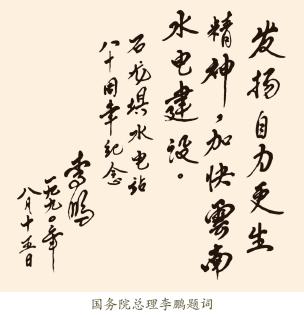 发扬自力更生
精神，加快雲南
水电建设。
石龙埧水电站
八十周年纪念
李鹏
一九九〇年
八月十五日
国务院总理李鹏题词